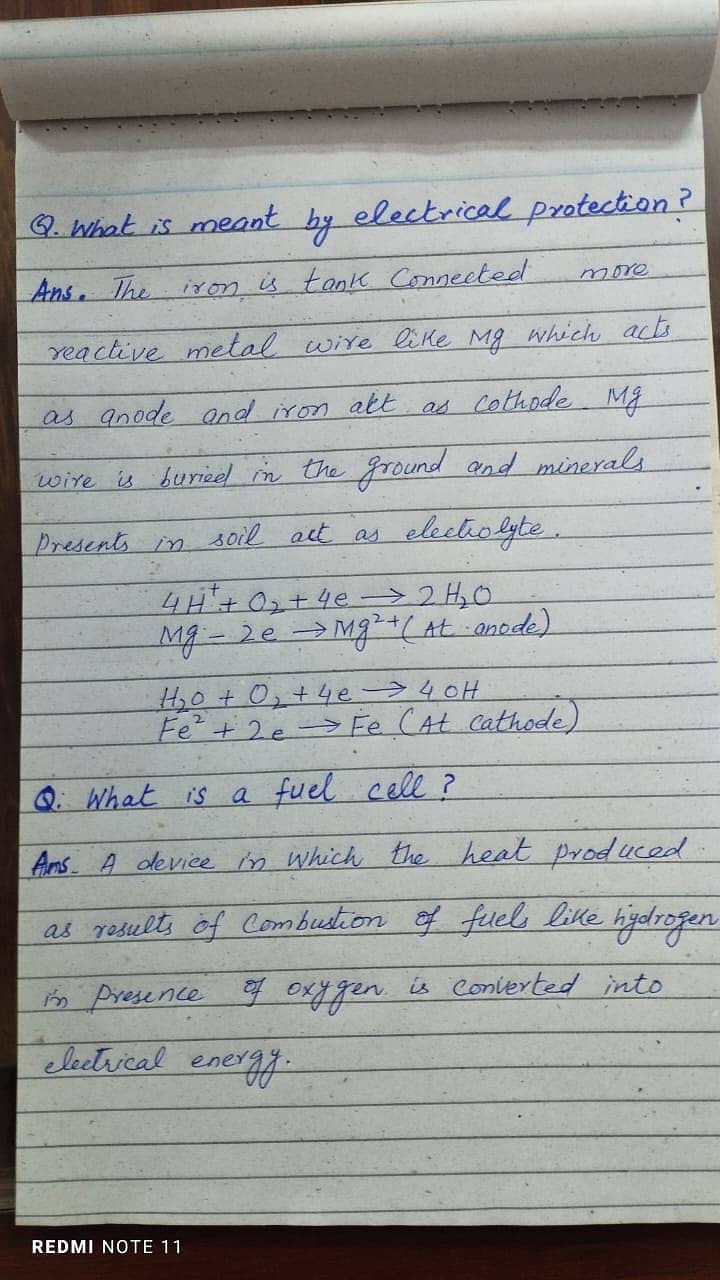 Q. What is meant by electrical protection?
Ans. The iron is tank Connected more
reactive metal wire like Mg which acts
as anode and iron akt as cothode. Mg
wire is buried in the ground and minerals
Presents in soil act as electrolyte.
4H⁺ + O₂ + 4e → 2H₂O
Mg - 2e → Mg²⁺ (At anode)
H₂O + O₂ + 4e → 4OH
Fe² + 2e → Fe (At Cathode)
Q. What is a fuel cell?
Ans. A device in which the heat produced
as results of Combustion of fuels like hydrogen
in Presence of oxygen is converted into
electrical energy.
REDMI NOTE 11